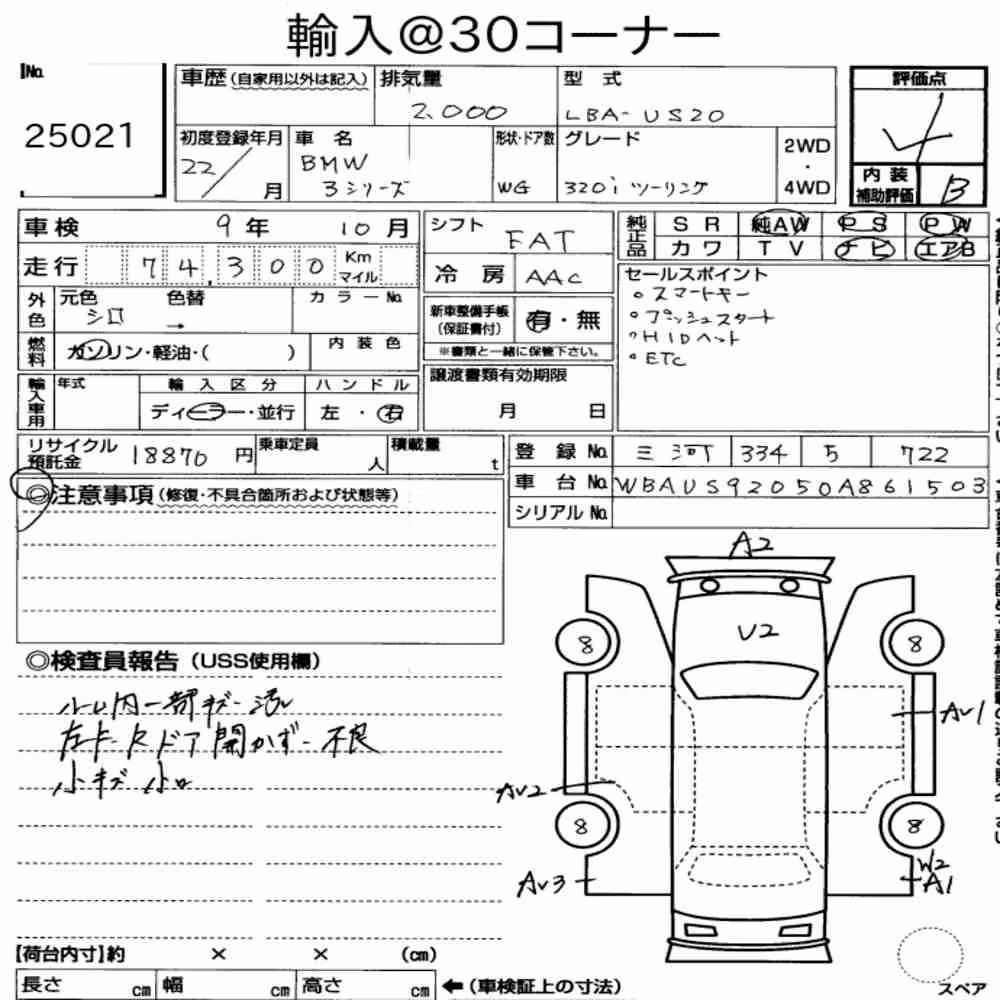 輸入@30コーナー
No.
25021
車歴(自家用以外は記入)
排気量
2,000
型 式
LBA-US20
評価点
4
内装補助評価
B
初度登録年月
22/ 月
車 名
BMW
3シリーズ
形状・ドア数
WG
グレード
320i ツーリング
2WD
・
4WD
車検 9年 10月
走行 74,300 Km マイル
外色 元色 シロ 色替 →
カラーNo.
燃料 ガソリン・軽油・( )
内装色
輸入車用 年式
輸入区分
ディーラー・並行
ハンドル
左・右
シフト FAT
冷房 AAC
新車整備手帳(保証書付) 有・無
※書類と一緒に保管下さい。
譲渡書類有効期限
月 日
純正品 SR 純AW PS PW
カワ TV ナビ エアB
セールスポイント
。スマートキー
。プッシュスタート
。HIDヘット
。ETC
リサイクル預託金 18870円
乗車定員 人
積載量 t
登録No. 三河 334 5 722
車台No. WBAUS92050A861503
シリアルNo.
◎注意事項(修復・不具合箇所および状態等)
◎検査員報告(USS使用欄)
ルーム内一部キズ・汚レ
左F-Rドア開かず-不良
小キズ 小凹
A2
V2
8
8
AV1
AV2
8
8
AV3
W2
A1
【荷台内寸】約 × × (cm)
長さ cm 幅 cm 高さ cm
←(車検証上の寸法)
スペア